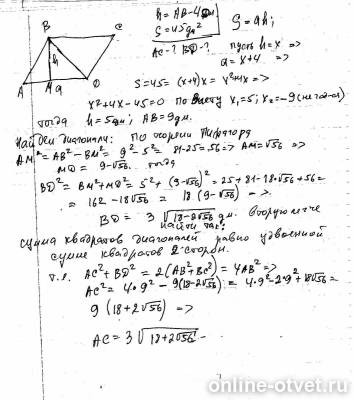 B C
h
A M a D
h = AB - 4дм
S = 45дм²
AC - ? BD - ?
S = ah;
пусть h = x =>
a = x+4 =>
S = 45 = (x+4)x = x²+4x =>
x²+4x-45=0 по Виету x₁=5; x₂=-9 (не годится)
тогда h = 5дм; AB = 9дм.
Найдем диагонали: По теореме Пифагора
AM² = AB² - BM² = 9² - 5² = 81-25 = 56 => AM = √56 =>
MD = 9-√56. тогда
BD² = BM²+MD² = 5² + (9-√56)² = 25 + 81 - 18√56 + 56 =
= 162 - 18√56 = 18(9-√56) =>
BD = 3√18-2√56 дм. Вторую легче
найти так:
сумма квадратов диагоналей равно удвоенной
сумме квадратов 2 сторон.
т.е. AC²+BD² = 2(AB²+BC²) = 4AB² =>
AC² = 4·9² - 9(18-2√56) = 4·9² - 2·9² + 18√56 =
9(18+2√56) =>
AC = 3√18+2√56
online-otvet.ru